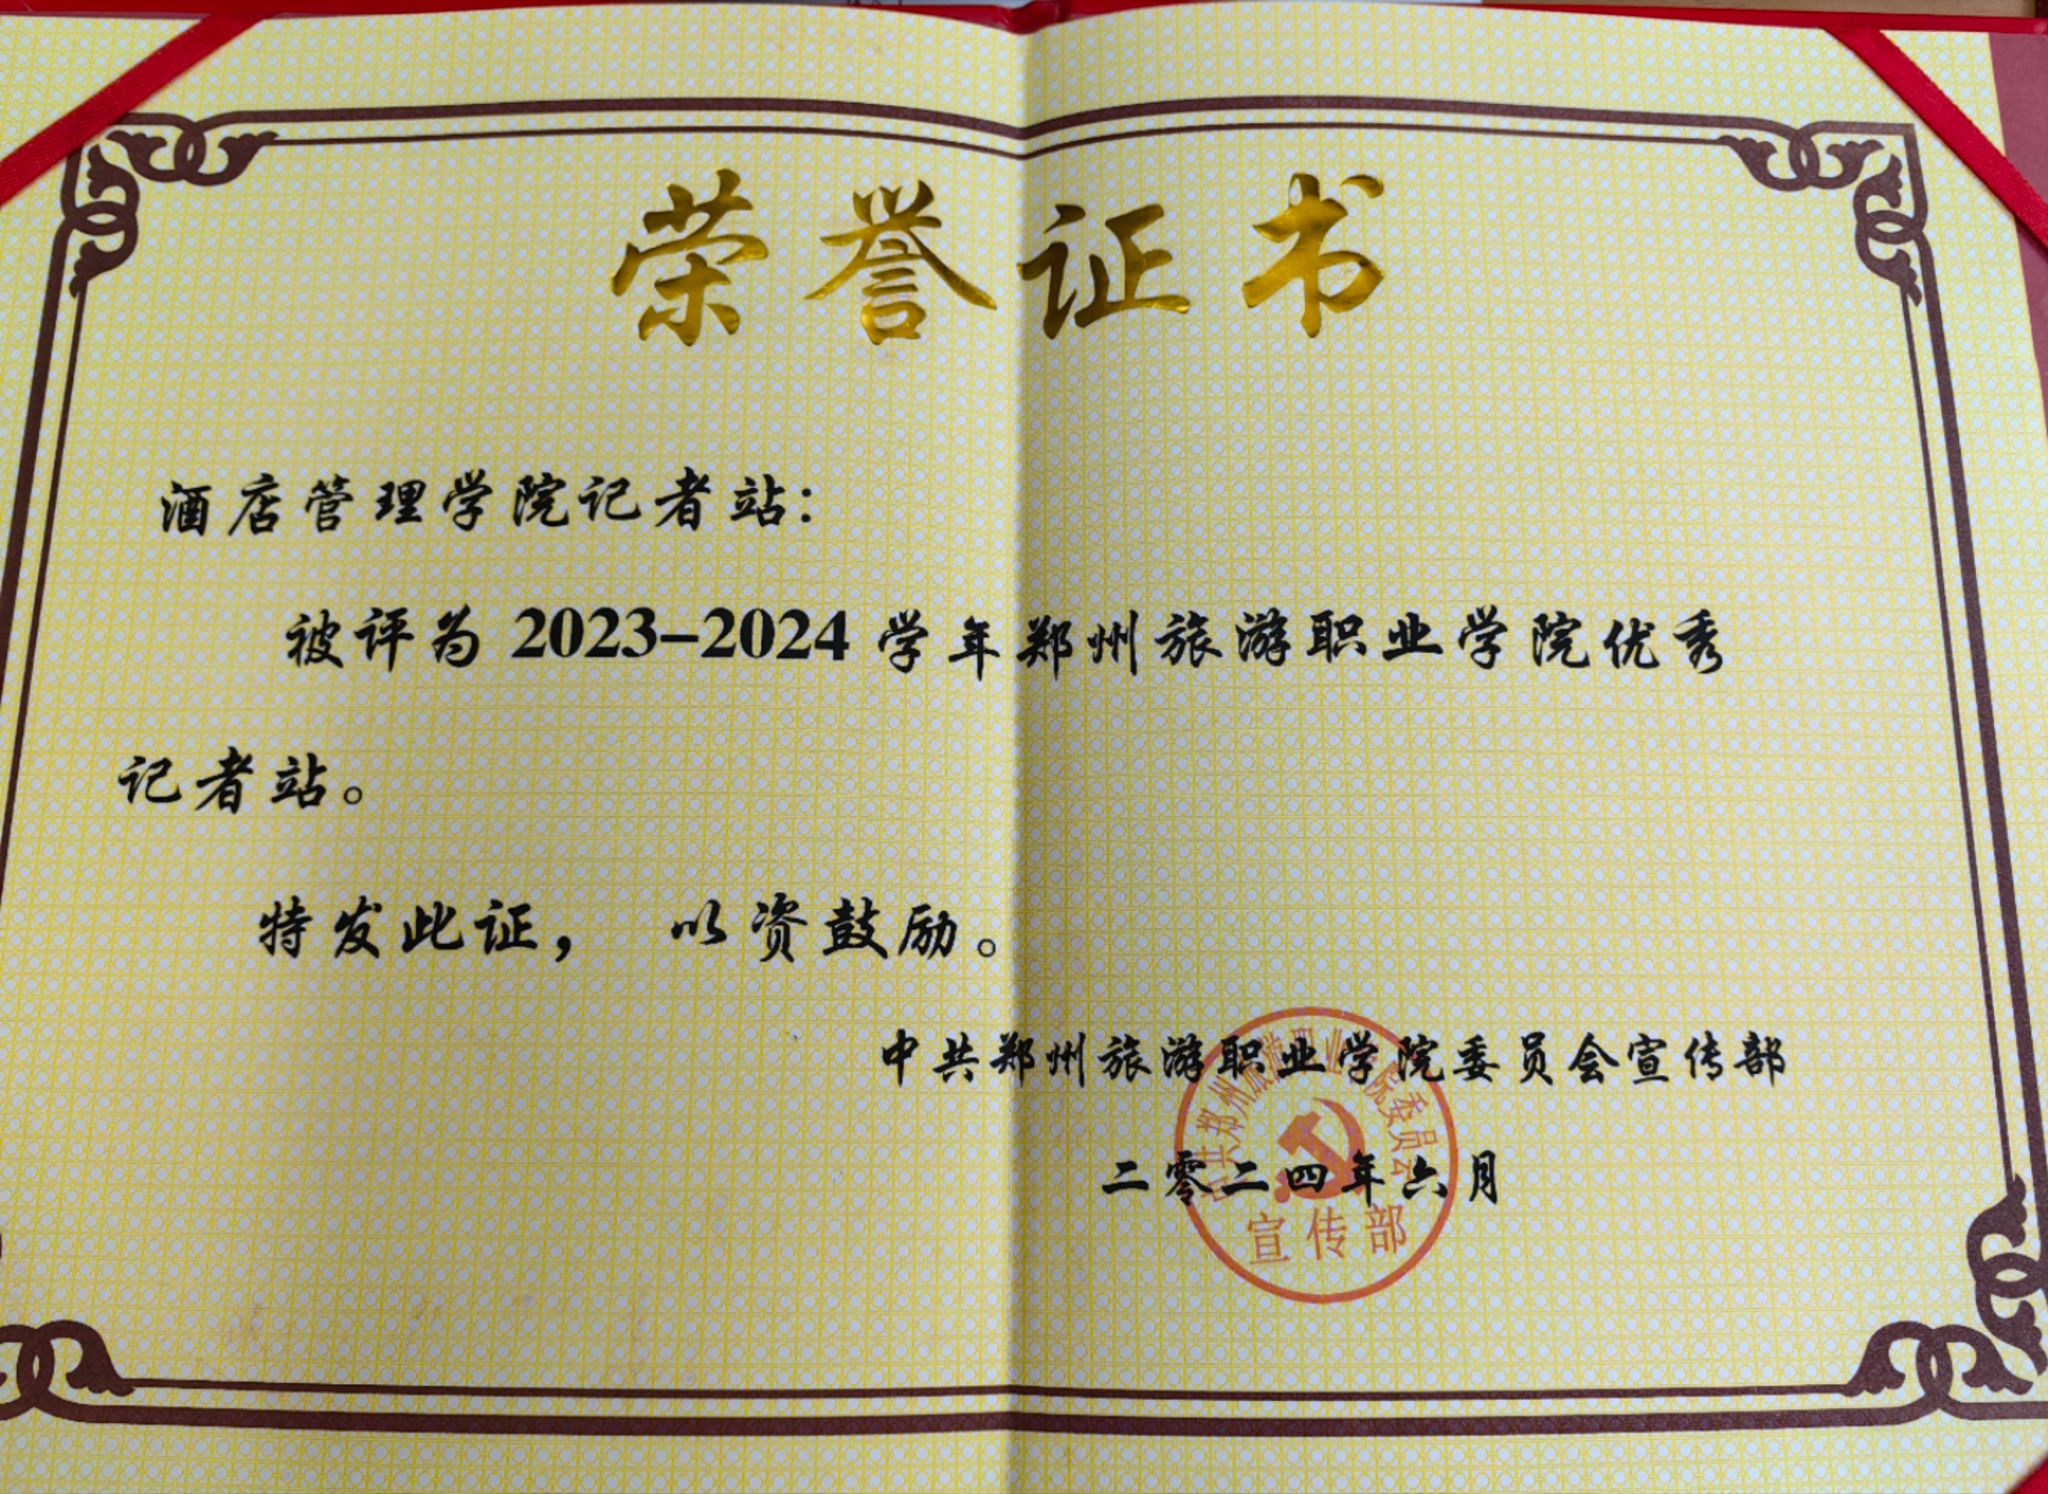 荣誉证书
酒店管理学院记者站：
被评为2023-2024学年郑州旅游职业学院优秀
记者站。
特发此证， 以资鼓励。
中共郑州旅游职业学院委员会宣传部
二零二四年六月
中共郑州旅游职业学院委员会
宣传部